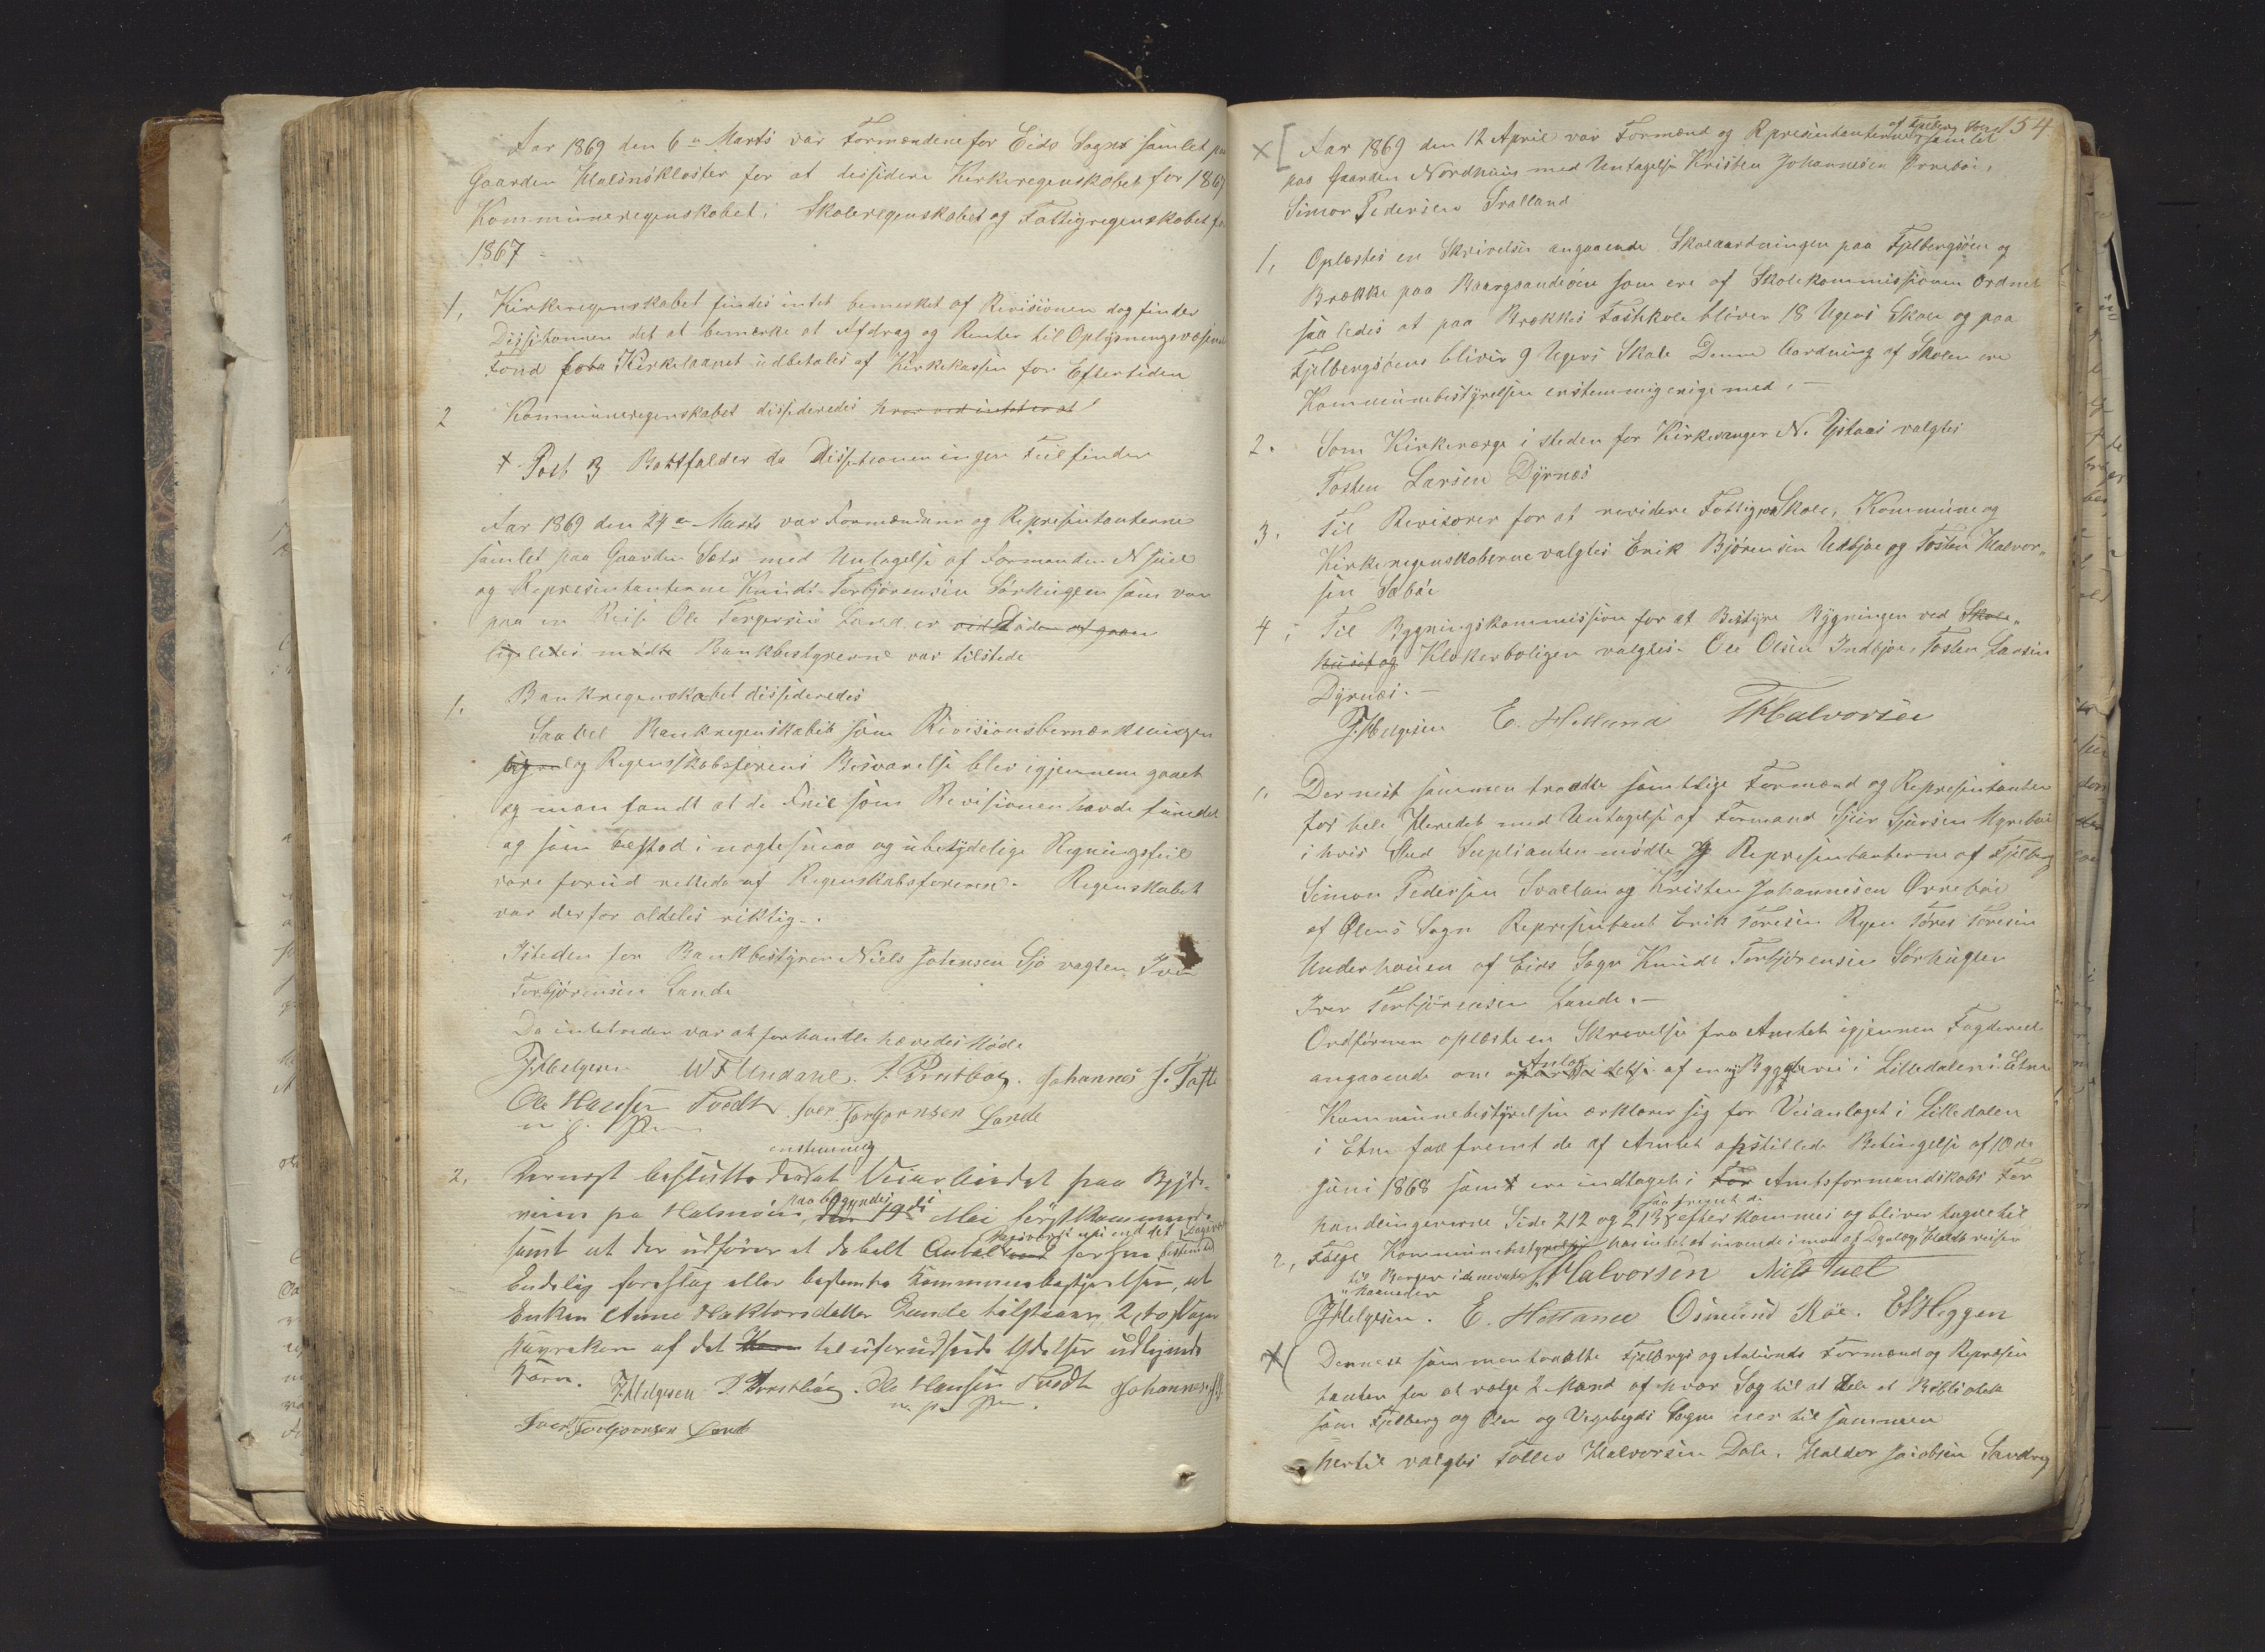 Aar 1869 den 6te Marts var Formændene for Eids Sogn samlet paa
Gaarden Halsnökloster for at dessidere Kirkeregenskabet for 1867
Kommuneregenskabet, Skoleregenskabet og Fattigregenskabet for
1867
1, Kirkeregenskabet findes intet bemerket af Revisionen dog finder
Dissitionen det at bemærke at Afdrag og Renter til Oplysningsvæsenets
Fond for Kirkelaanet udbetales af Kirkekassen for Eftertiden
2 Kommuneregenskabet dissideredes hvor ved intet er at
+ Post 3 Bortfalder da Dissitionen ingen Feil finder
Aar 1869 den 24de Marts var Formændene og Representanterne
samlet paa Gaarden Sæter med Untagelse af Formanden N Juel
og Representanterne Knud Torbjørensen Sørhuglen som var
paa en Reise Ole Torgersen Lund er ved Döden af gaaen
ligeledes mödte Bankbestyrerne var tilstede
1. Bankregenskabet dissideredes
Saavel Bankregenskabet som Revisionsbemærkningen
og Regenskabsførerens Besvarelse blev igjennem gaaet
og man fandt at de Feil som Revisionen havde fundet
og som bestod i nogle smaa og ubetydelige Regningsfeil
vare forud rettede af Regenskabsføreren. Regenskabet
var derfor aldeles riktig.
Isteden for Bankbestyrer Niels Johnsen Sjo valgtes Iver
Torbjørensen Lande
Da intet videre var at forhandle hævedes Möde
J. Helgesen W F Undahl. J. Prestbøe. Johannes J. Tofte
Ole Hansen Tvedt Iver Torbjornsen Lande
m. p. Pen
enstemmig
2, Dernæst besluttedes at Veiarbeidet paa Bygde-
veien pa Halsnöen paa begyndes den 19de Mai førstkommende
samt at der udføres et dobelt Antal Dagsverk bestemt
Endelig foreslog eller bestemte Kommunebestyrelsen, at
Enken Anne Haktorsdatter Lunde tilstaaes 2 (to) Dages
af det til Ydelser udlignede
Korn. J. Helgesen J. Prestbøe. Ole Hansen Tvedt Johannes J.
m. p. Pen.
Iver Torbjornsen Land
154
af Fjelberg Sogn
Aar 1869 den 12 April var Formænd og Representanterne samlet
paa Gaarden Nordhuus med Untagelse Kristen Johannesen Ørrebøe,
Simon Pedersen Svalland
1, Oplæstes en Skrivelse angaaende Skoleordningen paa Fjelbergøen og
Brække paa Borgundøen som ere af Skolekommissionen Ordnet
saaledes at paa Brækkes Fastskole bliver 18 Ugers Skole og paa
Fjelbergøens bliver 9 Ugers Skole Denne Aardning af Skolen ere
Kommunebestyrelsen enstemmig enige med. —
2. Som Kirkeværge i steden for Kirkesanger N. Ystaas valgtes
Tosten Larsen Dyrnes
3. Til Revisorer for at revidere Fattig, Skole, Kommune og
Kirkeregenskaberne valgtes Erik Bjørensen Udbjoe og Tosten Halvor„
sen Sæbøe
4, Til Bygningskommission for at Bestyre Bygningen ved Skole„
huset og Klokkerboligen valgtes. Ole Olsen Indbjoe, Tosten Larsen
Dyrnæs. —
J. Helgesen E. Hetland T Halvorsen
1. Dernest sammentraadte samtlige Formænd og Representanter
for hele Heredet med Untagelse af Formand Sjur Sjursen Myrebøe
i hvis Sted Suplianten mödte Representanterne af Fjelberg
Simon Pedersen Svallan og Kristen Johannesen Ørrebøe
af Ølens Sogn Representant Erik Toresen Rygen Tøres Toresen
Underhouen af Eids Sogn Knudt Torbjørensen Sørhuglen
Iver Torbjørensen Lande. —
Ordføreren oplæste en Skrivelse fra Amtet igjennem Fogderiet
angaaende om Anlæg af en ny Bygdevei i Lilledalen i Etne
Kommunebestyrelsen erklærer sig for Veianlæget i Lilledalen
i Etne saafremt de af Amtet opstillede Betingelse af 10de
Juni 1868 samt ere indtaget i For Amtsformandskabs For
saa fremt de
handlingerne Side 212 og 213 efterkommes og bliver tagne til
2, Følge Kommunebestyrelsen har intet at invende imod at Dyrlæge Holdt reiser
til Bergen i de nevnte
Maaneder T Halvorsen Niels Juel
J Helgesen. E. Hettand Osmund Röe. E Heggen
Dernest sammentraadte Fjelbergs og Aalunds Formænd og Represen
tanter for at vælge 2 Mænd af hvor Sog til at dele et Bibliotek
som Fjelberg og Ølen og Vigebygds Sogne eier til sammen
hertil valgtes Tollev Halvorsen Dale. Haldor Jacobsen Sandvig